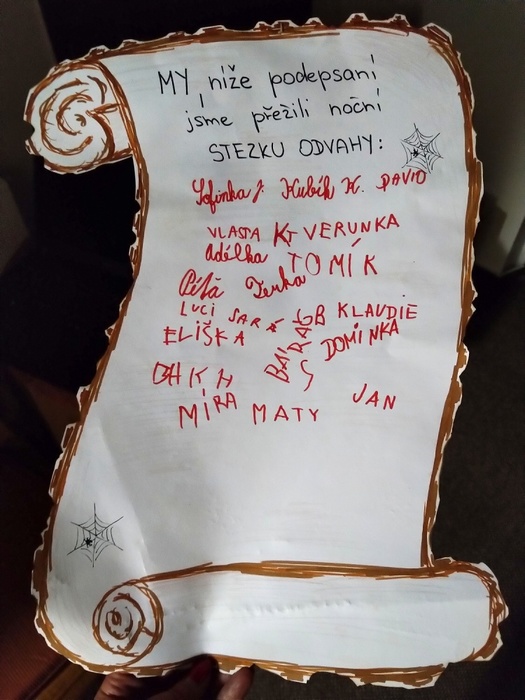 MY níže podepsaní
jsme přežili noční
STEZKU ODVAHY:
Sofinka J. Kubík K. DAVID
VLASTA KT VERUNKA
Adélka TOMÍK
Péťa Terka
LUCI SARA KLAUDIE
ELIŠKA DOMINKA
BÁRA
MÍRA MATY JAN